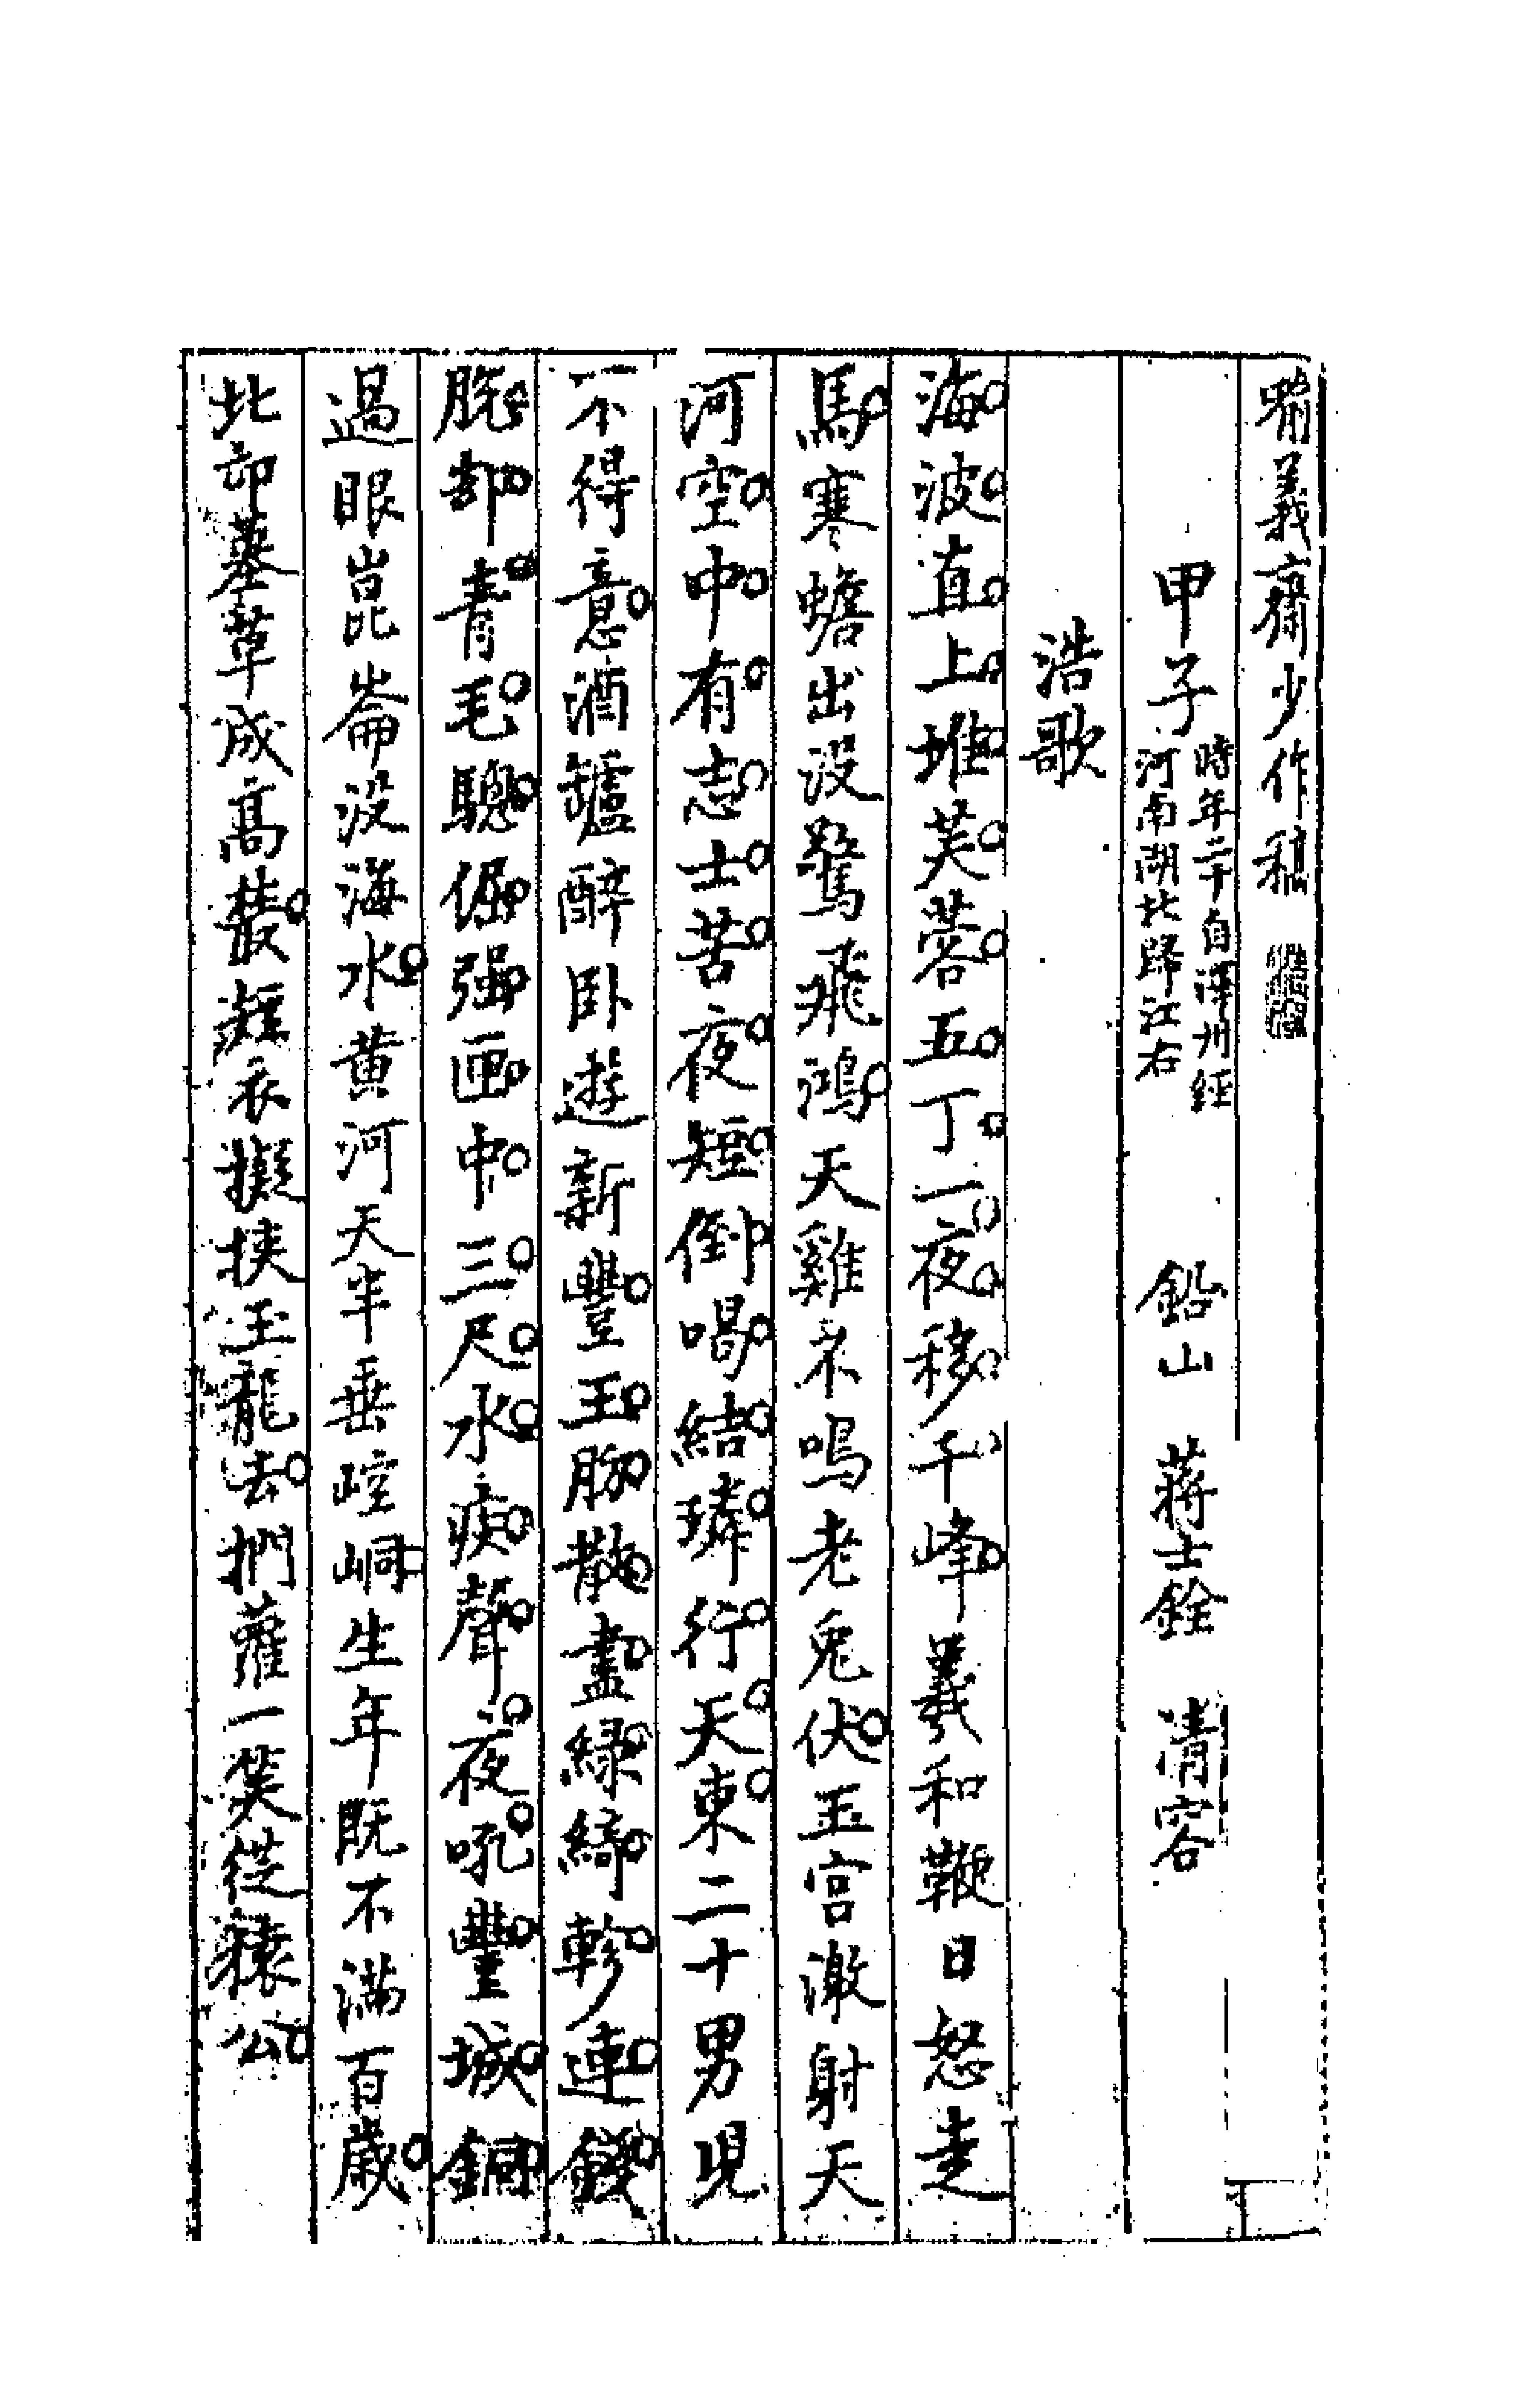 喻義齋少作稿
甲子 時年二十自澤州經
河南湖北歸江右 鉛山 蔣士銓 清容
浩歌
海波直上堆芙蓉五丁一夜移千峰羲和鞭日怒走
馬寒蟾出没驚飛鴻天雞不鳴老兔伏玉宫激射天
河空中有志士苦夜短倒喝結璘行天東二十男児
不得意酒罏醉卧遊新豐玉勒散盡緑綺軫連錢
脱却青毛驄倔强匣中三尺水痴聲夜吼豐城銅
過眼崑崙没海水黄河天半垂崆峒生年既不滿百歲
北邙墓草成高叢凝衣擬挟玉龍去捫蘿一笑從猿公